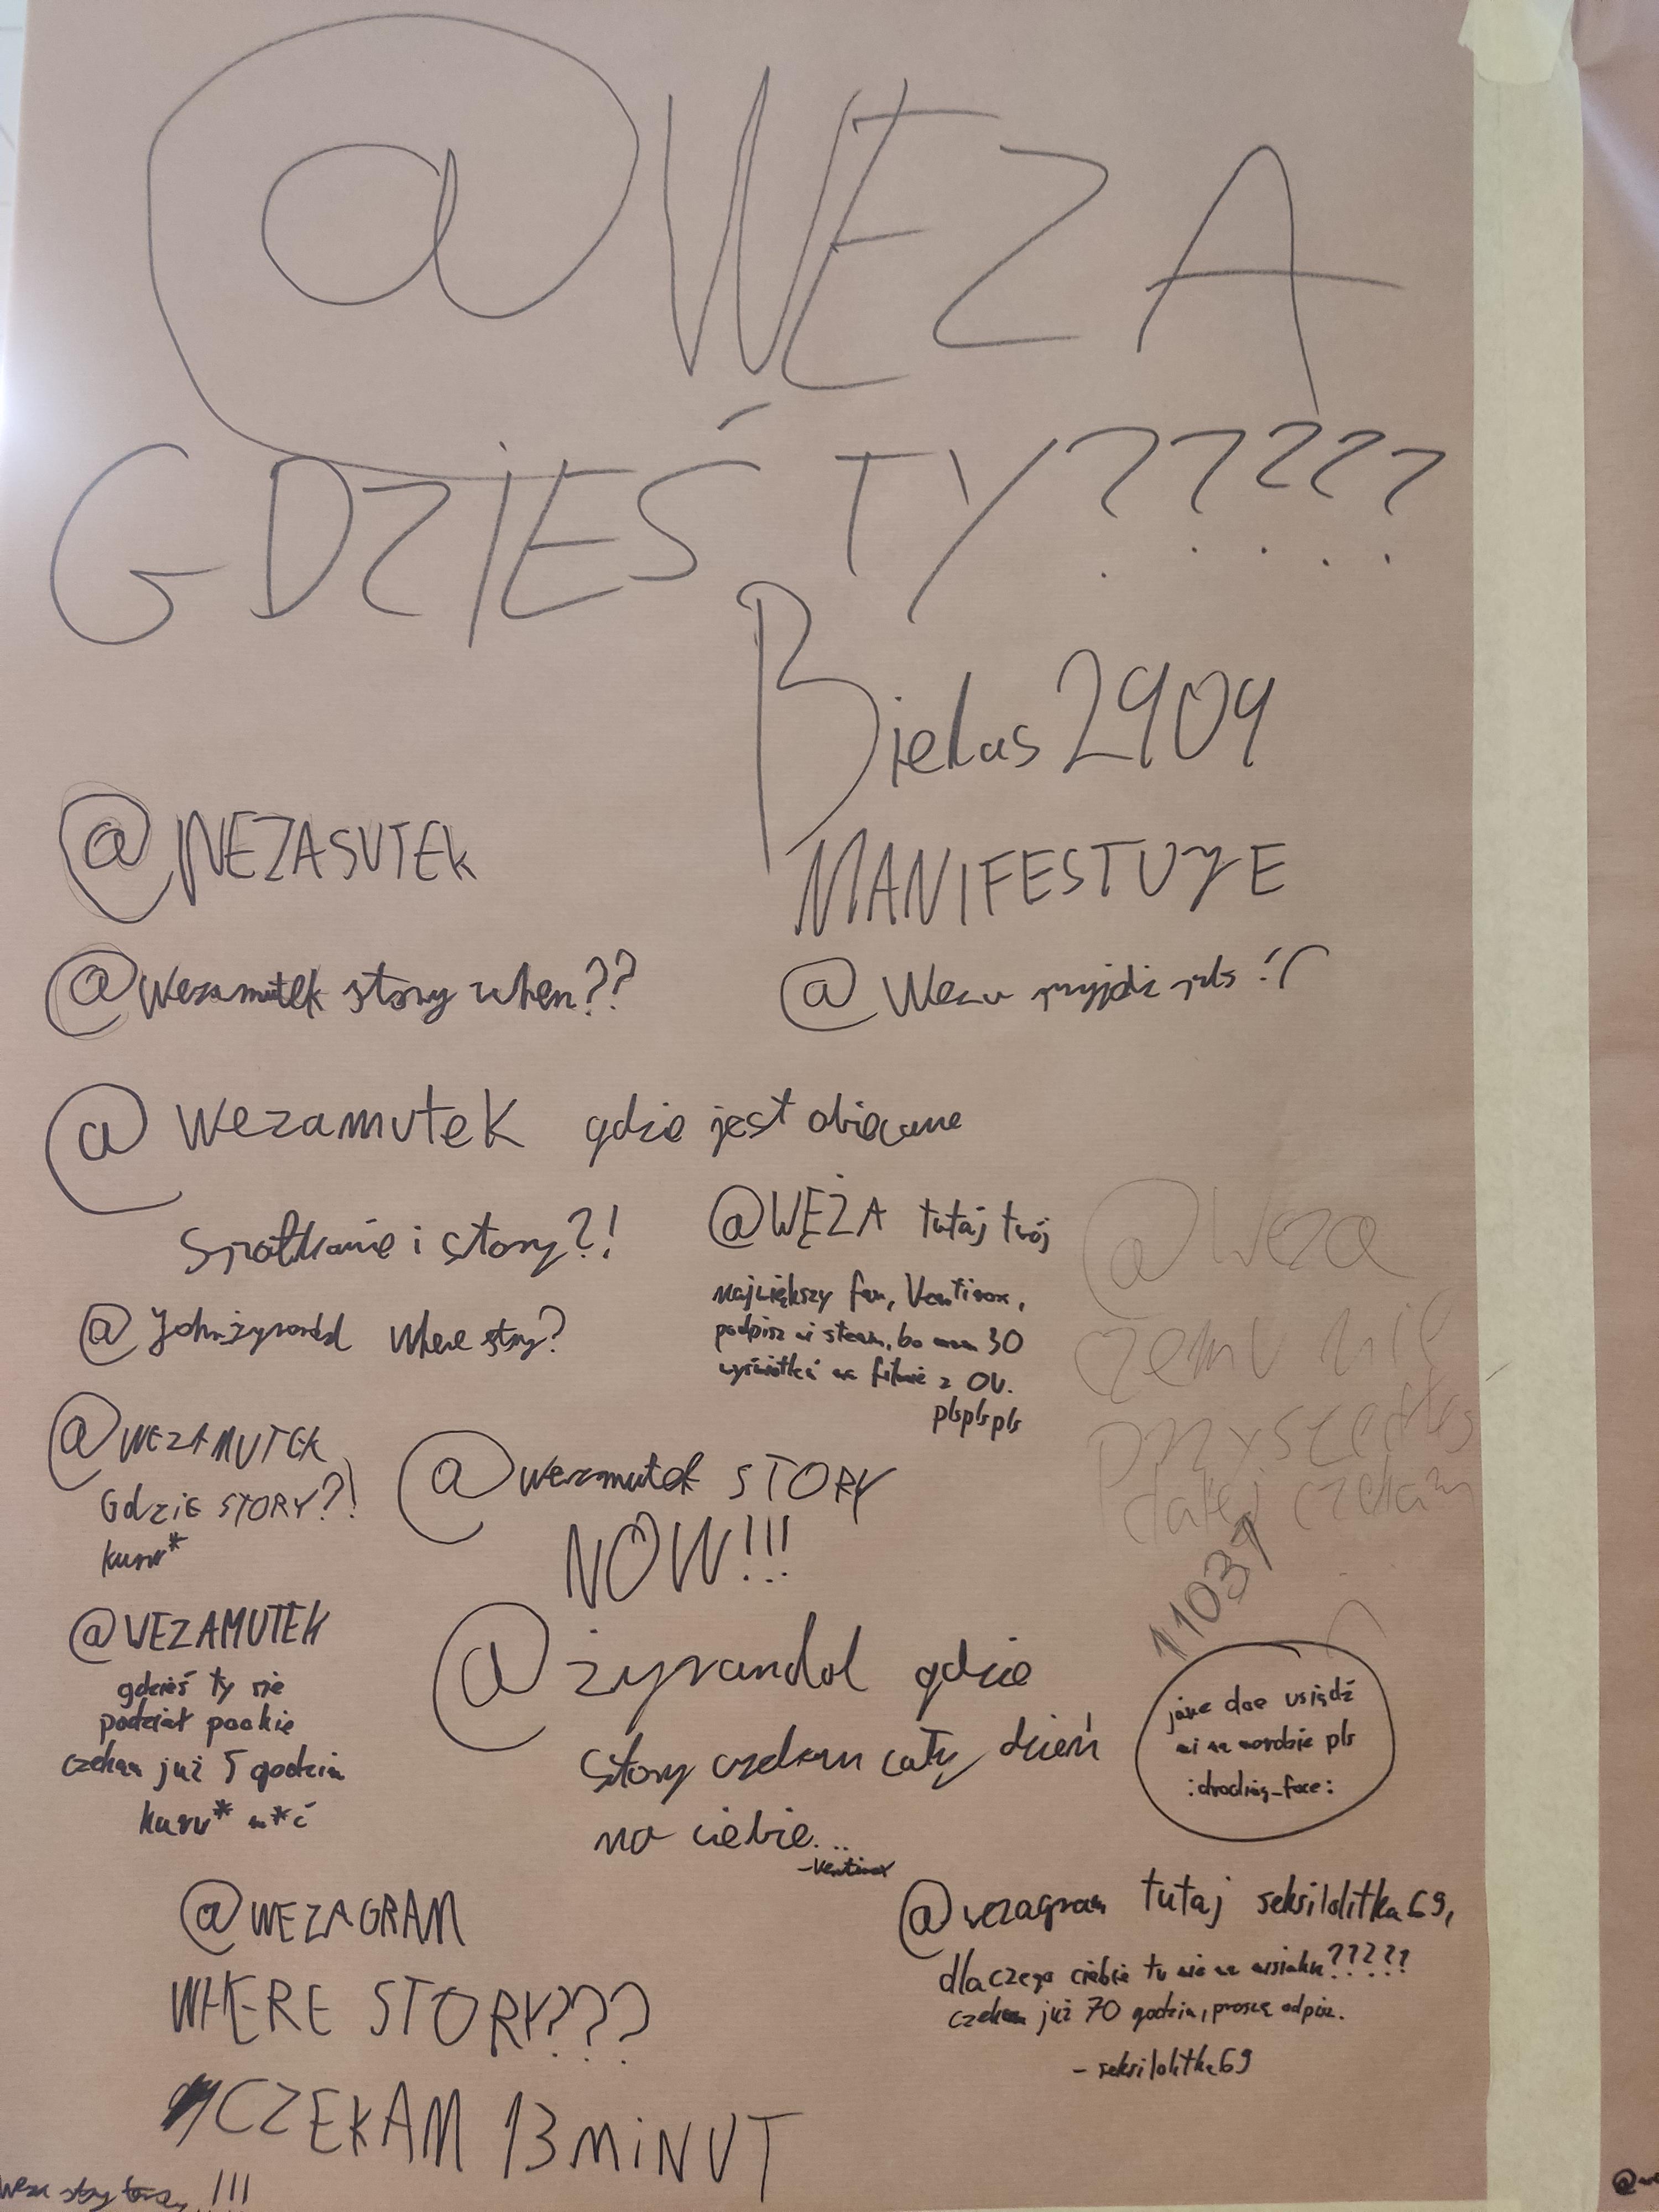 @WEZA
GDZIEŚ TY?????
Bielas2909
MANIFESTUJE
@WEZASUTEK
@Wezamutek story when??
@Weza przyjdź pls :(
@wezamutek gdzie jest obiecane
spotkanie i story?!
@WĘŻA tutaj twój
największy fan, Ventinox,
podpisz mi steam, bo mam 30
wyświetleń na filmie z OV.
plsplspls
@Weza
czemu nie
przyszedłeś
dalej czekam
11037
@Johnżyrandol where story?
@WEZAMUTEK
GdziE STORY?!
kurw*
@wezamutek STORY
NOW!!!
@WEZAMUTEK
gdzieś ty się
podział pookie
czekam już 5 godzin
kurw* m*ć
@żyrandol gdzie
story czekam cały dzień
na ciebie...
-Ventinox
jane doe usiądź
mi na mordzie pls
:drooling_face:
@WEZAGRAM
WHERE STORY???
CZEKAM 13 MiNUT
@wezagram tutaj seksilolitka69,
dlaczego ciebie tu nie ma
czekam już 70 godzin, proszę odpisz.
- seksilolitka69
Weza story !!!